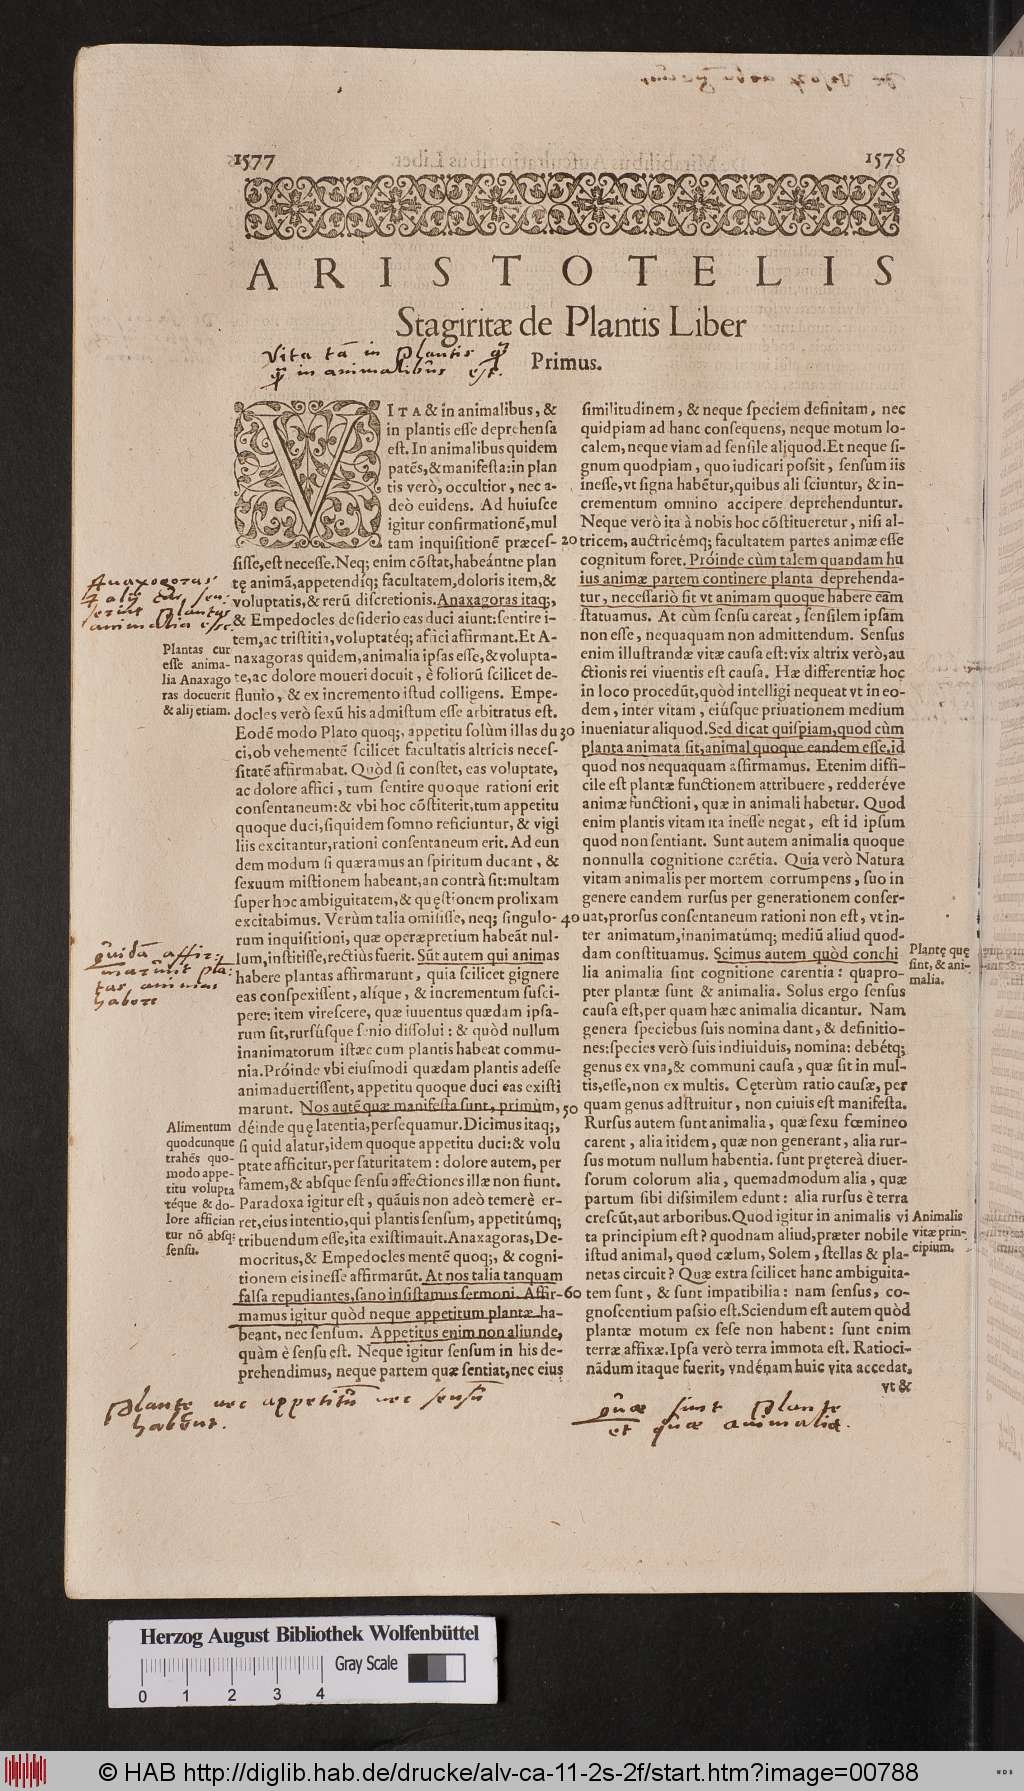 1577
1578
ARISTOTELIS
Stagiritæ de Plantis Liber
Primus.
Vita tã in Plantis
in animalibus est.
VITA & in animalibus, &
in plantis esse deprehensa
est. In animalibus quidem
patẽs, & manifesta: in plan
tis verò, occultior, nec a-
deò euidens. Ad huiusce
igitur confirmationẽ, mul
tam inquisitionẽ præces-
sisse, est necesse. Neq; enim cõstat, habeántne plan
tę animã, appetendíq; facultatem, doloris item, &
voluptatis, & rerũ discretionis. Anaxagoras itaq;,
& Empedocles desiderio eas duci aiunt: sentire i-
tem, ac tristitia, voluptatéq; afici affirmant. Et A-
naxagoras quidem, animalia ipsas esse, & volupta-
te, ac dolore moueri docuit, è foliorũ scilicet de-
fluuio, & ex incremento istud colligens. Empe-
docles verò sexũ his admistum esse arbitratus est.
Eodẽ modo Plato quoq;, appetitu solùm illas du
ci, ob vehementẽ scilicet facultatis altricis neces-
sitatẽ affirmabat. Quòd si constet, eas voluptate,
ac dolore affici, tum sentire quoque rationi erit
consentaneum: & vbi hoc cõstiterit, tum appetitu
quoque duci, siquidem somno reficiuntur, & vigi
liis excitantur, rationi consentaneum erit. Ad eun
dem modum si quæramus an spiritum ducant, &
sexuum mistionem habeant, an contrà sit: multam
super hoc ambiguitatem, & quęstionem prolixam
excitabimus. Verùm talia omisisse, neq; singulo-
rum inquisitioni, quæ operæpretium habeãt nul-
lum, institisse, rectiùs fuerit. Sũt autem qui animas
habere plantas affirmarunt, quia scilicet gignere
eas conspexissent, alíque, & incrementum susci-
pere: item virescere, quæ iuuentus quædam ipsa-
rum sit, rursúsque senio dissolui: & quòd nullum
inanimatorum istæc cum plantis habeat commu-
nia. Próinde vbi eiusmodi quædam plantis adesse
animaduertissent, appetitu quoque duci eas existi
marunt. Nos autẽ quæ manifesta sunt, primùm,
déinde quę latentia, persequamur. Dicimus itaq;,
si quid alatur, idem quoque appetitu duci: & volu
ptate afficitur, per saturitatem: dolore autem, per
famem, & absque sensu affectiones illæ non fiunt.
Paradoxa igitur est, quãuis non adeò temerè er-
ret, eius intentio, qui plantis sensum, appetitúmq;
tribuendum esse, ita existimauit. Anaxagoras, De-
mocritus, & Empedocles mentẽ quoq;, & cogni-
tionem eis inesse affirmarũt. At nos talia tanquam
falsa repudiantes, sano insistamus sermoni. Affir-
mamus igitur quòd neque appetitum plantæ ha-
beant, nec sensum. Appetitus enim non aliunde,
quàm è sensu est. Neque igitur sensum in his de-
prehendimus, neque partem quæ sentiat, nec eius
Anaxogoras
alij sen-
serint Plantas
animalia esse.
Plantas cur
esse anima-
lia Anaxago
ras docuerit
& alij etiam.
Quidã affir-
marunt pla-
tas animas
habere
Alimentum
quodcunque
trahẽs quo-
modo appe-
titu volupta
téque & do-
lore affician
tur nõ absq;
sensu.
20
30
40
50
60
similitudinem, & neque speciem definitam, nec
quidpiam ad hanc consequens, neque motum lo-
calem, neque viam ad sensile aliquod. Et neque si-
gnum quodpiam, quo iudicari possit, sensum iis
inesse, vt signa habẽtur, quibus ali sciuntur, & in-
crementum omnino accipere deprehenduntur.
Neque verò ita à nobis hoc cõstitueretur, nisi al-
tricem, auctricémq; facultatem partes animæ esse
cognitum foret. Próinde cùm talem quandam hu
ius animæ partem continere planta deprehenda-
tur, necessariò sit vt animam quoque habere eãm
statuamus. At cùm sensu careat, sensilem ipsam
non esse, nequaquam non admittendum. Sensus
enim illustrandæ vitæ causa est: vix altrix verò, au
ctionis rei viuentis est causa. Hæ differentiæ hoc
in loco procedũt, quòd intelligi nequeat vt in eo-
dem, inter vitam, eiúsque priuationem medium
inueniatur aliquod. Sed dicat quispiam, quod cùm
planta animata sit, animal quoque eandem esse, id
quod nos nequaquam affirmamus. Etenim diffi-
cile est plantæ functionem attribuere, redderéve
animæ functioni, quæ in animali habetur. Quod
enim plantis vitam ita inesse negat, est id ipsum
quod non sentiant. Sunt autem animalia quoque
nonnulla cognitione carẽtia. Quia verò Natura
vitam animalis per mortem corrumpens, suo in
genere eandem rursus per generationem conser-
uat, prorsus consentaneum rationi non est, vt in-
ter animatum, inanimatúmq; mediũ aliud quod-
dam constituamus. Scimus autem quòd conchi
lia animalia sint cognitione carentia: quapro-
pter plantæ sunt & animalia. Solus ergo sensus
causa est, per quam hæc animalia dicantur. Nam
genera speciebus suis nomina dant, & definitio-
nes: species verò suis indiuiduis, nomina: debétq;
genus ex vna, & communi causa, quæ sit in mul-
tis, esse, non ex multis. Cęterùm ratio causæ, per
quam genus adstruitur, non cuiuis est manifesta.
Rursus autem sunt animalia, quæ sexu fœmineo
carent, alia itidem, quæ non generant, alia rur-
sus motum nullum habentia. sunt pręterеà diuer-
sorum colorum alia, quemadmodum alia, quæ
partum sibi dissimilem edunt: alia rursus è terra
crescũt, aut arboribus. Quod igitur in animalis vi
ta principium est? quodnam aliud, præter nobile
istud animal, quod cælum, Solem, stellas & pla-
netas circuit? Quæ extra scilicet hanc ambiguita-
tem sunt, & sunt impatibilia: nam sensus, co-
gnoscentium passio est. Sciendum est autem quòd
plantæ motum ex sese non habent: sunt enim
terræ affixæ. Ipsa verò terra immota est. Ratioci-
nãdum itaque fuerit, vndénam huic vita accedat,
vt &
Plantę quę
sint, & ani-
malia.
Animalis
vitæ prin-
cipium.
Plante nec appetitũ nec sensũ
habent.
Quæ sint Plante
et quæ animalia.
Herzog August Bibliothek Wolfenbüttel
Gray Scale
0 1 2 3 4
© HAB http://diglib.hab.de/drucke/alv-ca-11-2s-2f/start.htm?image=00788